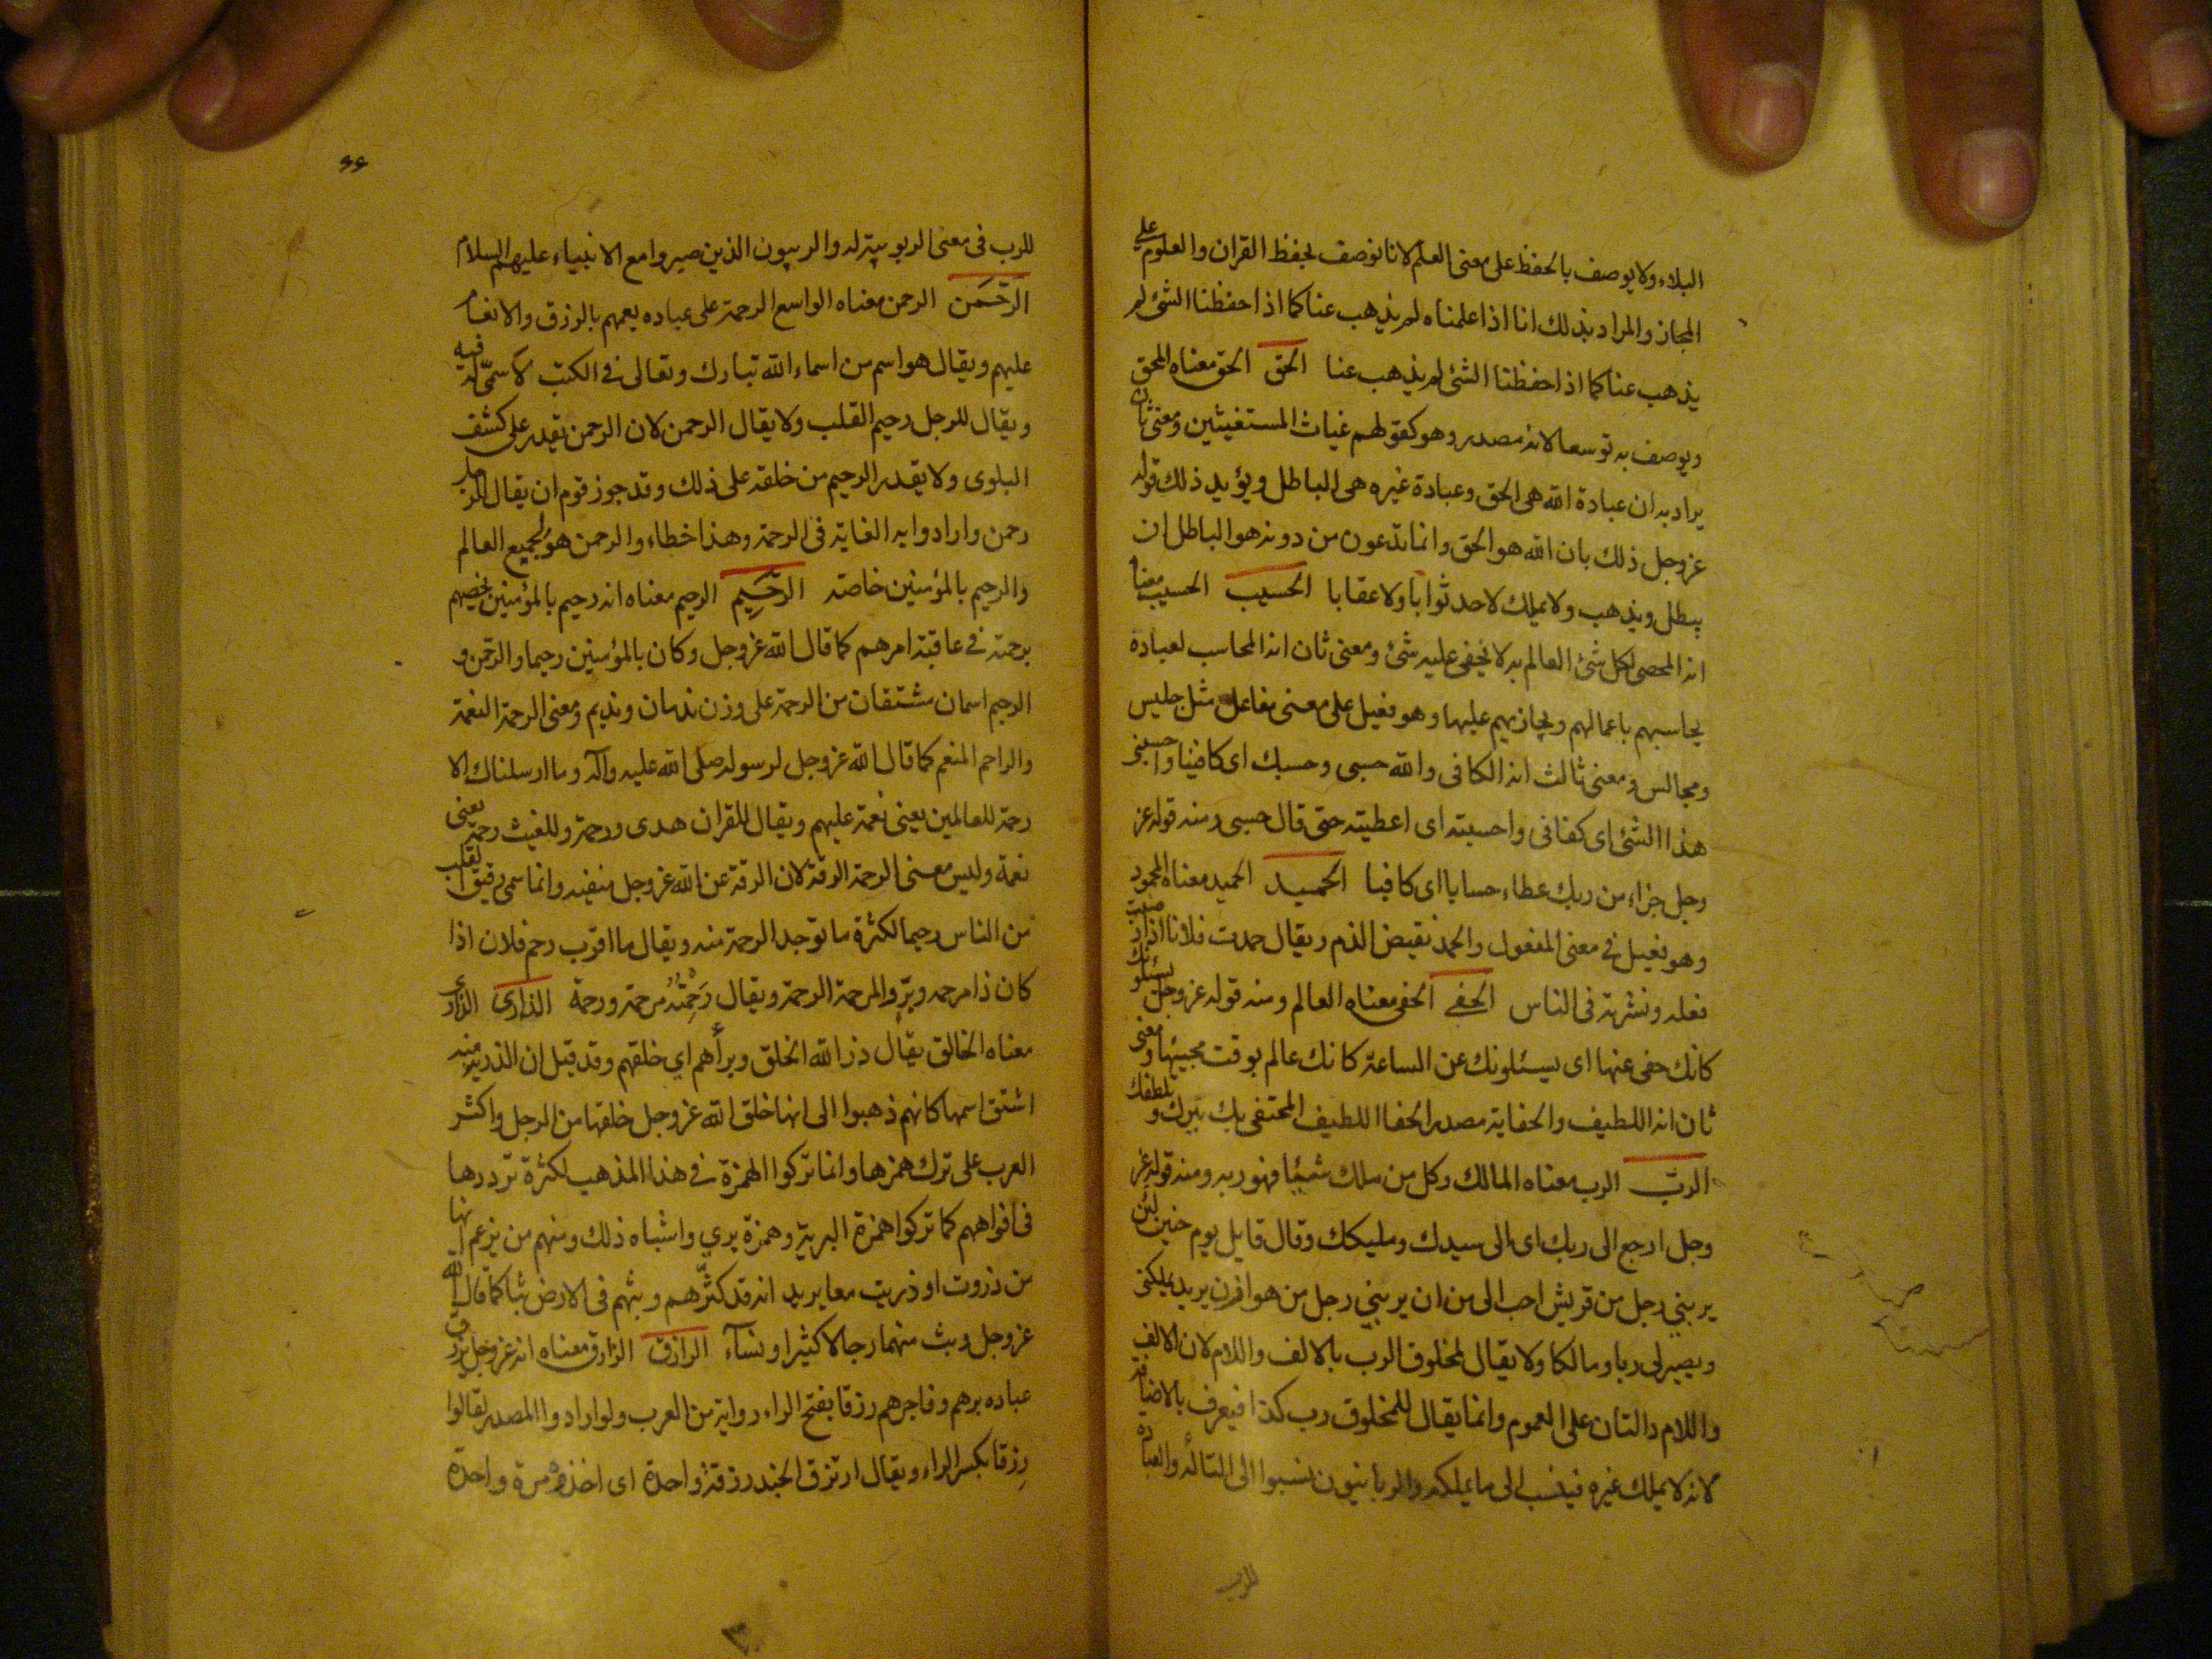 البلاء ولا يوصف بالحفظ على معنى العلم لانا نوصف بحفظ القران والعلوم على
المجاز والمراد بذلك انا اذا علمناه لم يذهب عنا كما اذا حفظنا الشئ لم
يذهب عنا كما اذا حفظنا الشئ لم يذهب عنا الحق الحق معناه المحق
ويوصف به توسعا لانه مصدر وهو كقولهم غياث المستغيثين ومعنى ثان
يراد به ان عبادة الله هى الحق وعبادة غيره هى الباطل ويؤيد ذلك قوله
عز وجل ذلك بان الله هو الحق وانما تدعون من دونه هو الباطل ان
يبطل ويذهب ولا يملك لاحد ثوابا ولا عقابا الحسيب الحسيب معناه
انه المحصى لكل شئ العالم به لا يخفى عليه شئ ومعنى ثان انه المحاسب لعباده
يحاسبهم باعمالهم ويجازيهم عليها وهو فعيل على معنى مفاعل مثل جليس
ومجالس ومعنى ثالث انه الكافى والله حسبى وحسبك اى كافينا واحسبنى
هذا الشئ اى كفانى واحسبته اى اعطيته حتى قال حسبى ومنه قوله عز
وجل جزاء من ربك عطاء حسابا اى كافيا الحميد الحميد معناه المحمود
وهو فعيل في معنى المفعول والحمد نقيض الذم ويقال حمدت فلانا اذا رضيت
فعله ونشرته فى الناس الحفي الحفى معناه العالم ومنه قوله عز وجل يسئلونك
كانك حفى عنها اى يسئلونك عن الساعة كانك عالم بوقت مجيئها ومعنى
ثان انه اللطيف والحفاية مصدر الحفا اللطيف المحتفى بك ببرك وبلطفك
الربّ الرب معناه المالك وكل من ملك شيئا فهو ربه ومنه قوله عز
وجل ارجع الى ربك اى الى سيدك ومليكك وقال قايل يوم حنين لئن
يربني رجل من قريش احب الى من ان يربني رجل من هوازن يريد يملكنى
ويصير لى ربا ومالكا ولا يقال لمخلوق الرب بالالف واللام لان الالف
واللام دالتان على العموم وانما يقال للمخلوق رب كذا فيعرف بالاضافة
لانه لا يملك غيره فينسب الى ما يملكه والربانيون نسبوا الى التالّه والعبادة
للرب
٦٦
للرب فى معنى الربوبية له والربيون الذين صبروا مع الانبياء عليهم السلام
الرّحمن الرحمن معناه الواسع الرحمة على عباده يعمهم بالرزق والانعام
عليهم ويقال هو اسم من اسماء الله تبارك وتعالى فى الكتب لا سمىّ له فيه
ويقال للرجل رحيم القلب ولا يقال الرحمن لان الرحمن يقدر على كشف
البلوى ولا يقدر الرحيم من خلقه على ذلك وقد جوز قوم ان يقال للرجل
رحمن وارادوا به الغاية فى الرحمة وهذا خطاء والرحمن هو لجميع العالم
والرحيم بالمؤمنين خاصة الرّحيم الرحيم معناه انه رحيم بالمؤمنين يخصهم
برحمته فى عاقبة امرهم كما قال الله عز وجل وكان بالمؤمنين رحيما والرحمن و
الرحيم اسمان مشتقان من الرحمة على وزن ندمان ونديم ومعنى الرحمة النعمة
والراحم المنعم كما قال الله عز وجل لرسوله صلى الله عليه وآله وما ارسلناك الا
رحمة للعالمين يعنى نعمة عليهم ويقال للقران هدى ورحمة وللغيث رحمة يعنى
نعمة وليس معنى الرحمة الرقة لان الرقة عن الله عز وجل منفية وانما سمى رقيق القلب
من الناس رحيما لكثرة ما توجد الرحمة منه ويقال ما اقرب رحم فلان اذا
كان ذا مرحمه وبرّ والمرحمة الرحمة ويقال رَحِمْتُهُ مرحمة ورحمة الذارى الذارى
معناه الخالق يقال ذرا الله الخلق وبرأهم اي خلقهم وقد قيل ان الذرية منه
اشتق اسمها كانهم ذهبوا الى انها خلق الله عز وجل خلقها من الرجل واكثر
العرب على ترك همزها وانما تركوا الهمزة في هذا المذهب لكثرة ترددها
فى افواههم كما تركوا همزة البرية وهمزة بري واشباه ذلك ومنهم من يزعم انها
من ذروت او ذريت معا يريد انه قد كثّرهم وبثهم فى الارض بثا كما قال الله
عز وجل وبث منهما رجالا كثيرا ونسآء الرازق الرازق معناه انه عز وجل يرزق
عباده برهم وفاجرهم رزقا بفتح الراء رواية من العرب ولو ارادوا المصدر لقالوا
رِزقا بكسر الراء ويقال ارتزق الجند رزقة واحدة اى اخذوه مرة واحدة